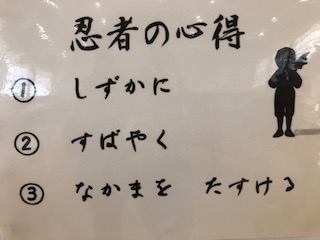 忍者の心得
① しずかに
② すばやく
③ なかまを たすける